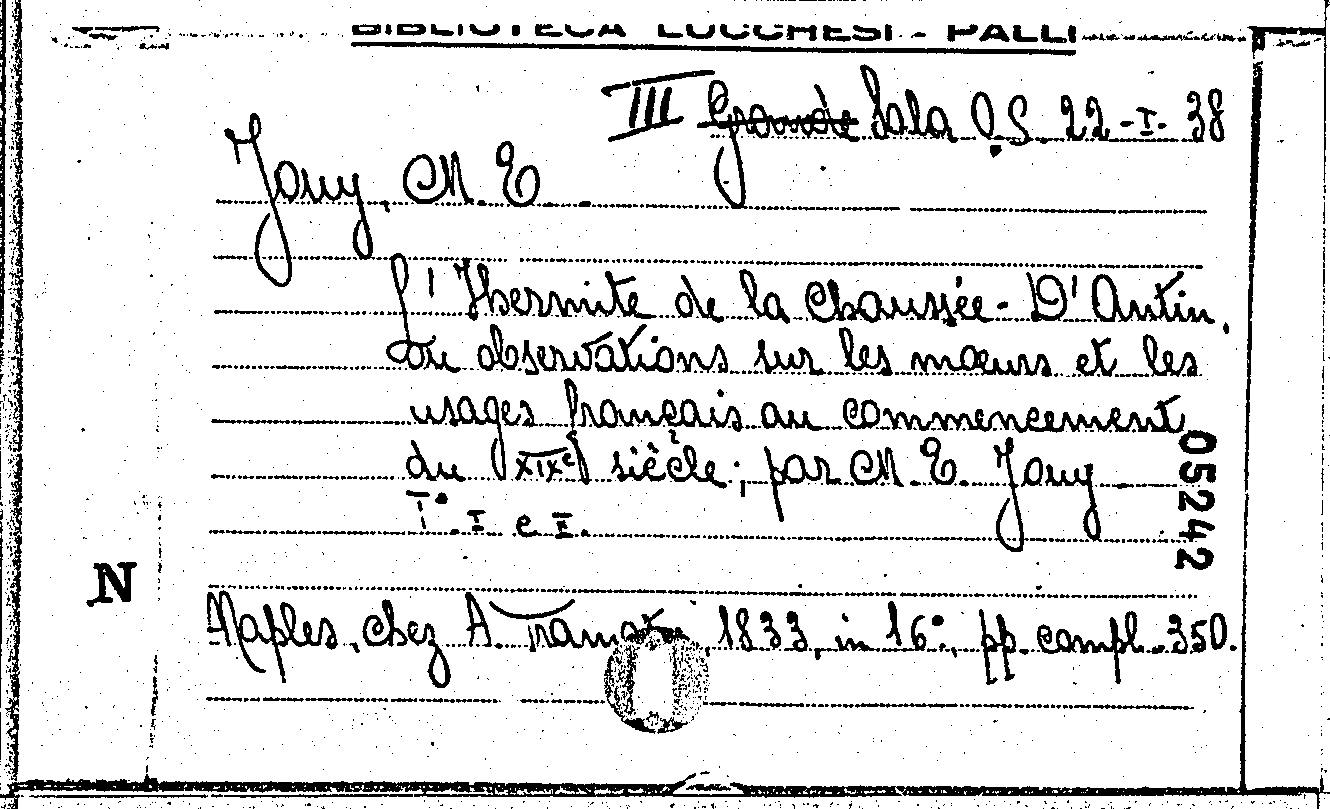 BIBLIOTECA LUCCHESI - PALLI
III Grande Sala O.S. 22-I-38
Jouy, M. E.
L'Hermite de la Chaussée-D'Antin,
ou observations sur les mœurs et les
usages français au commencement
du XIXe siècle; par M. E. Jouy
T° I e II.
05242
N
Naples, chez A. Tramater, 1833, in 16°, pp. compl. 350.